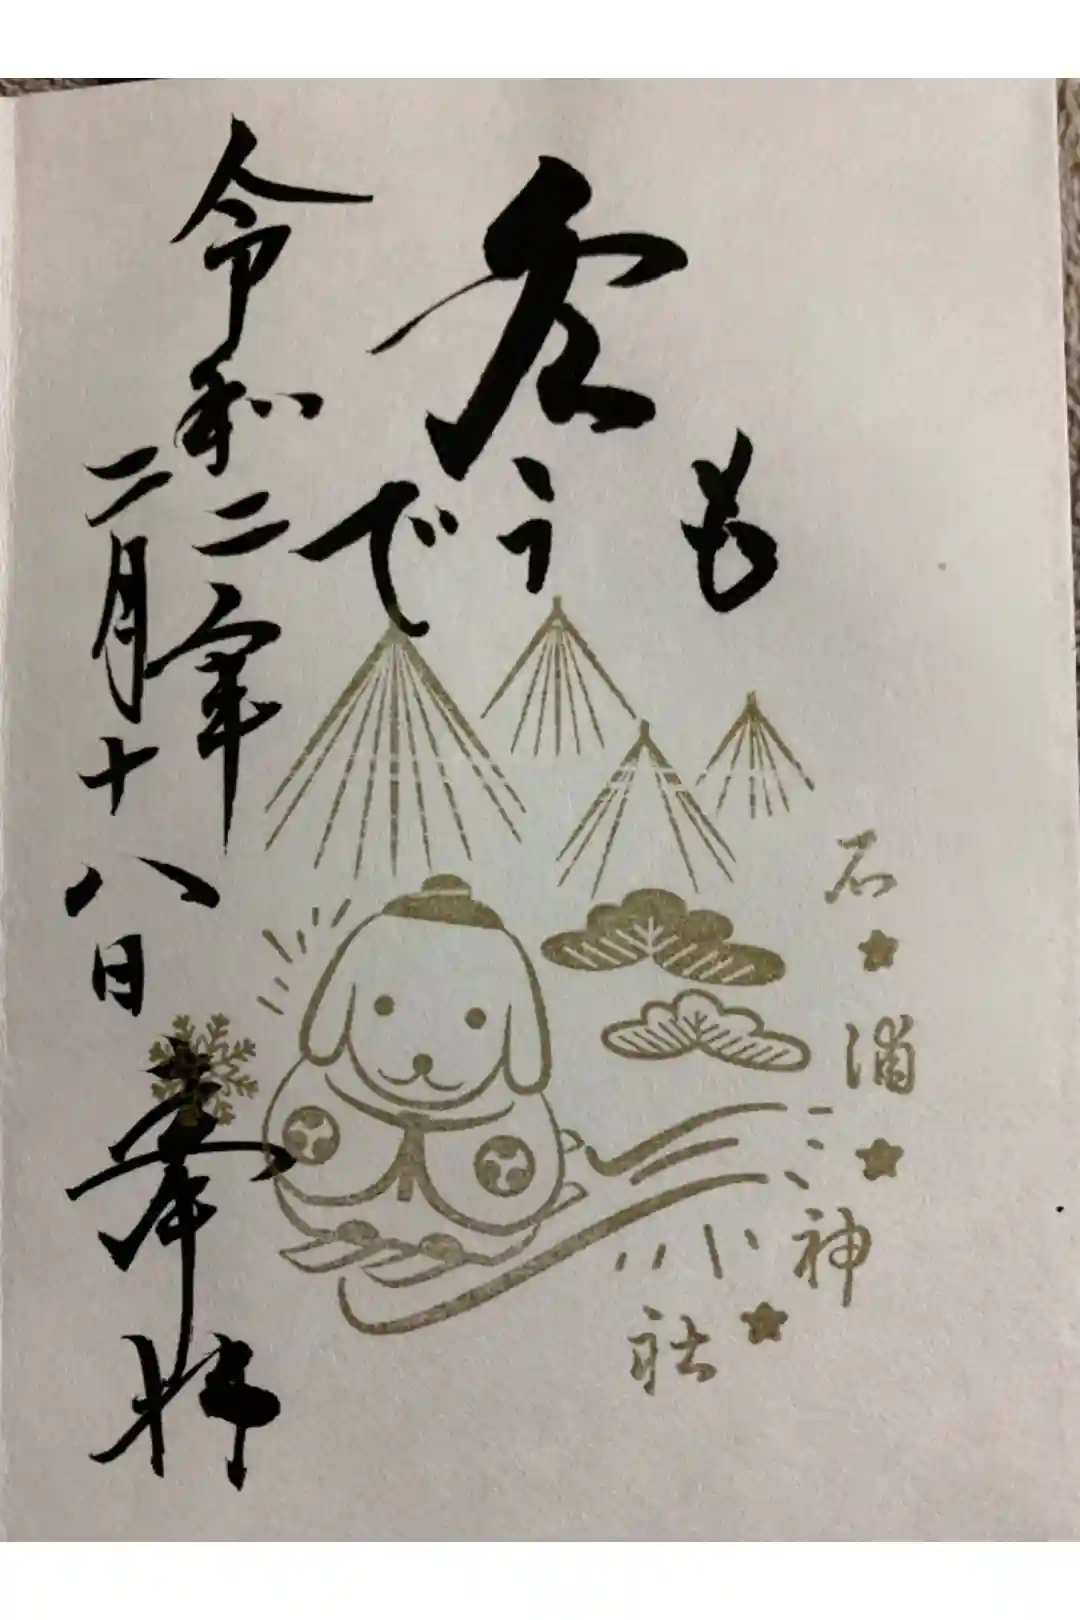 冬
もうで
令和二年
二月十八日
奉拝
石浦神社